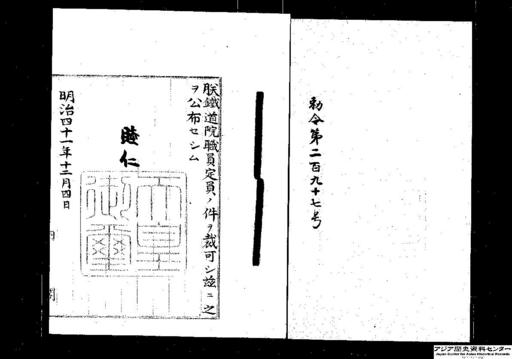 勅令第二百九十七号
朕鐵道院職員定員ノ件ヲ裁可シ茲ニ之
ヲ公布セシム
睦仁
天皇
御璽
明治四十一年十二月四日
内閣
アジア歴史資料センター
Japan Center for Asian Historical Records